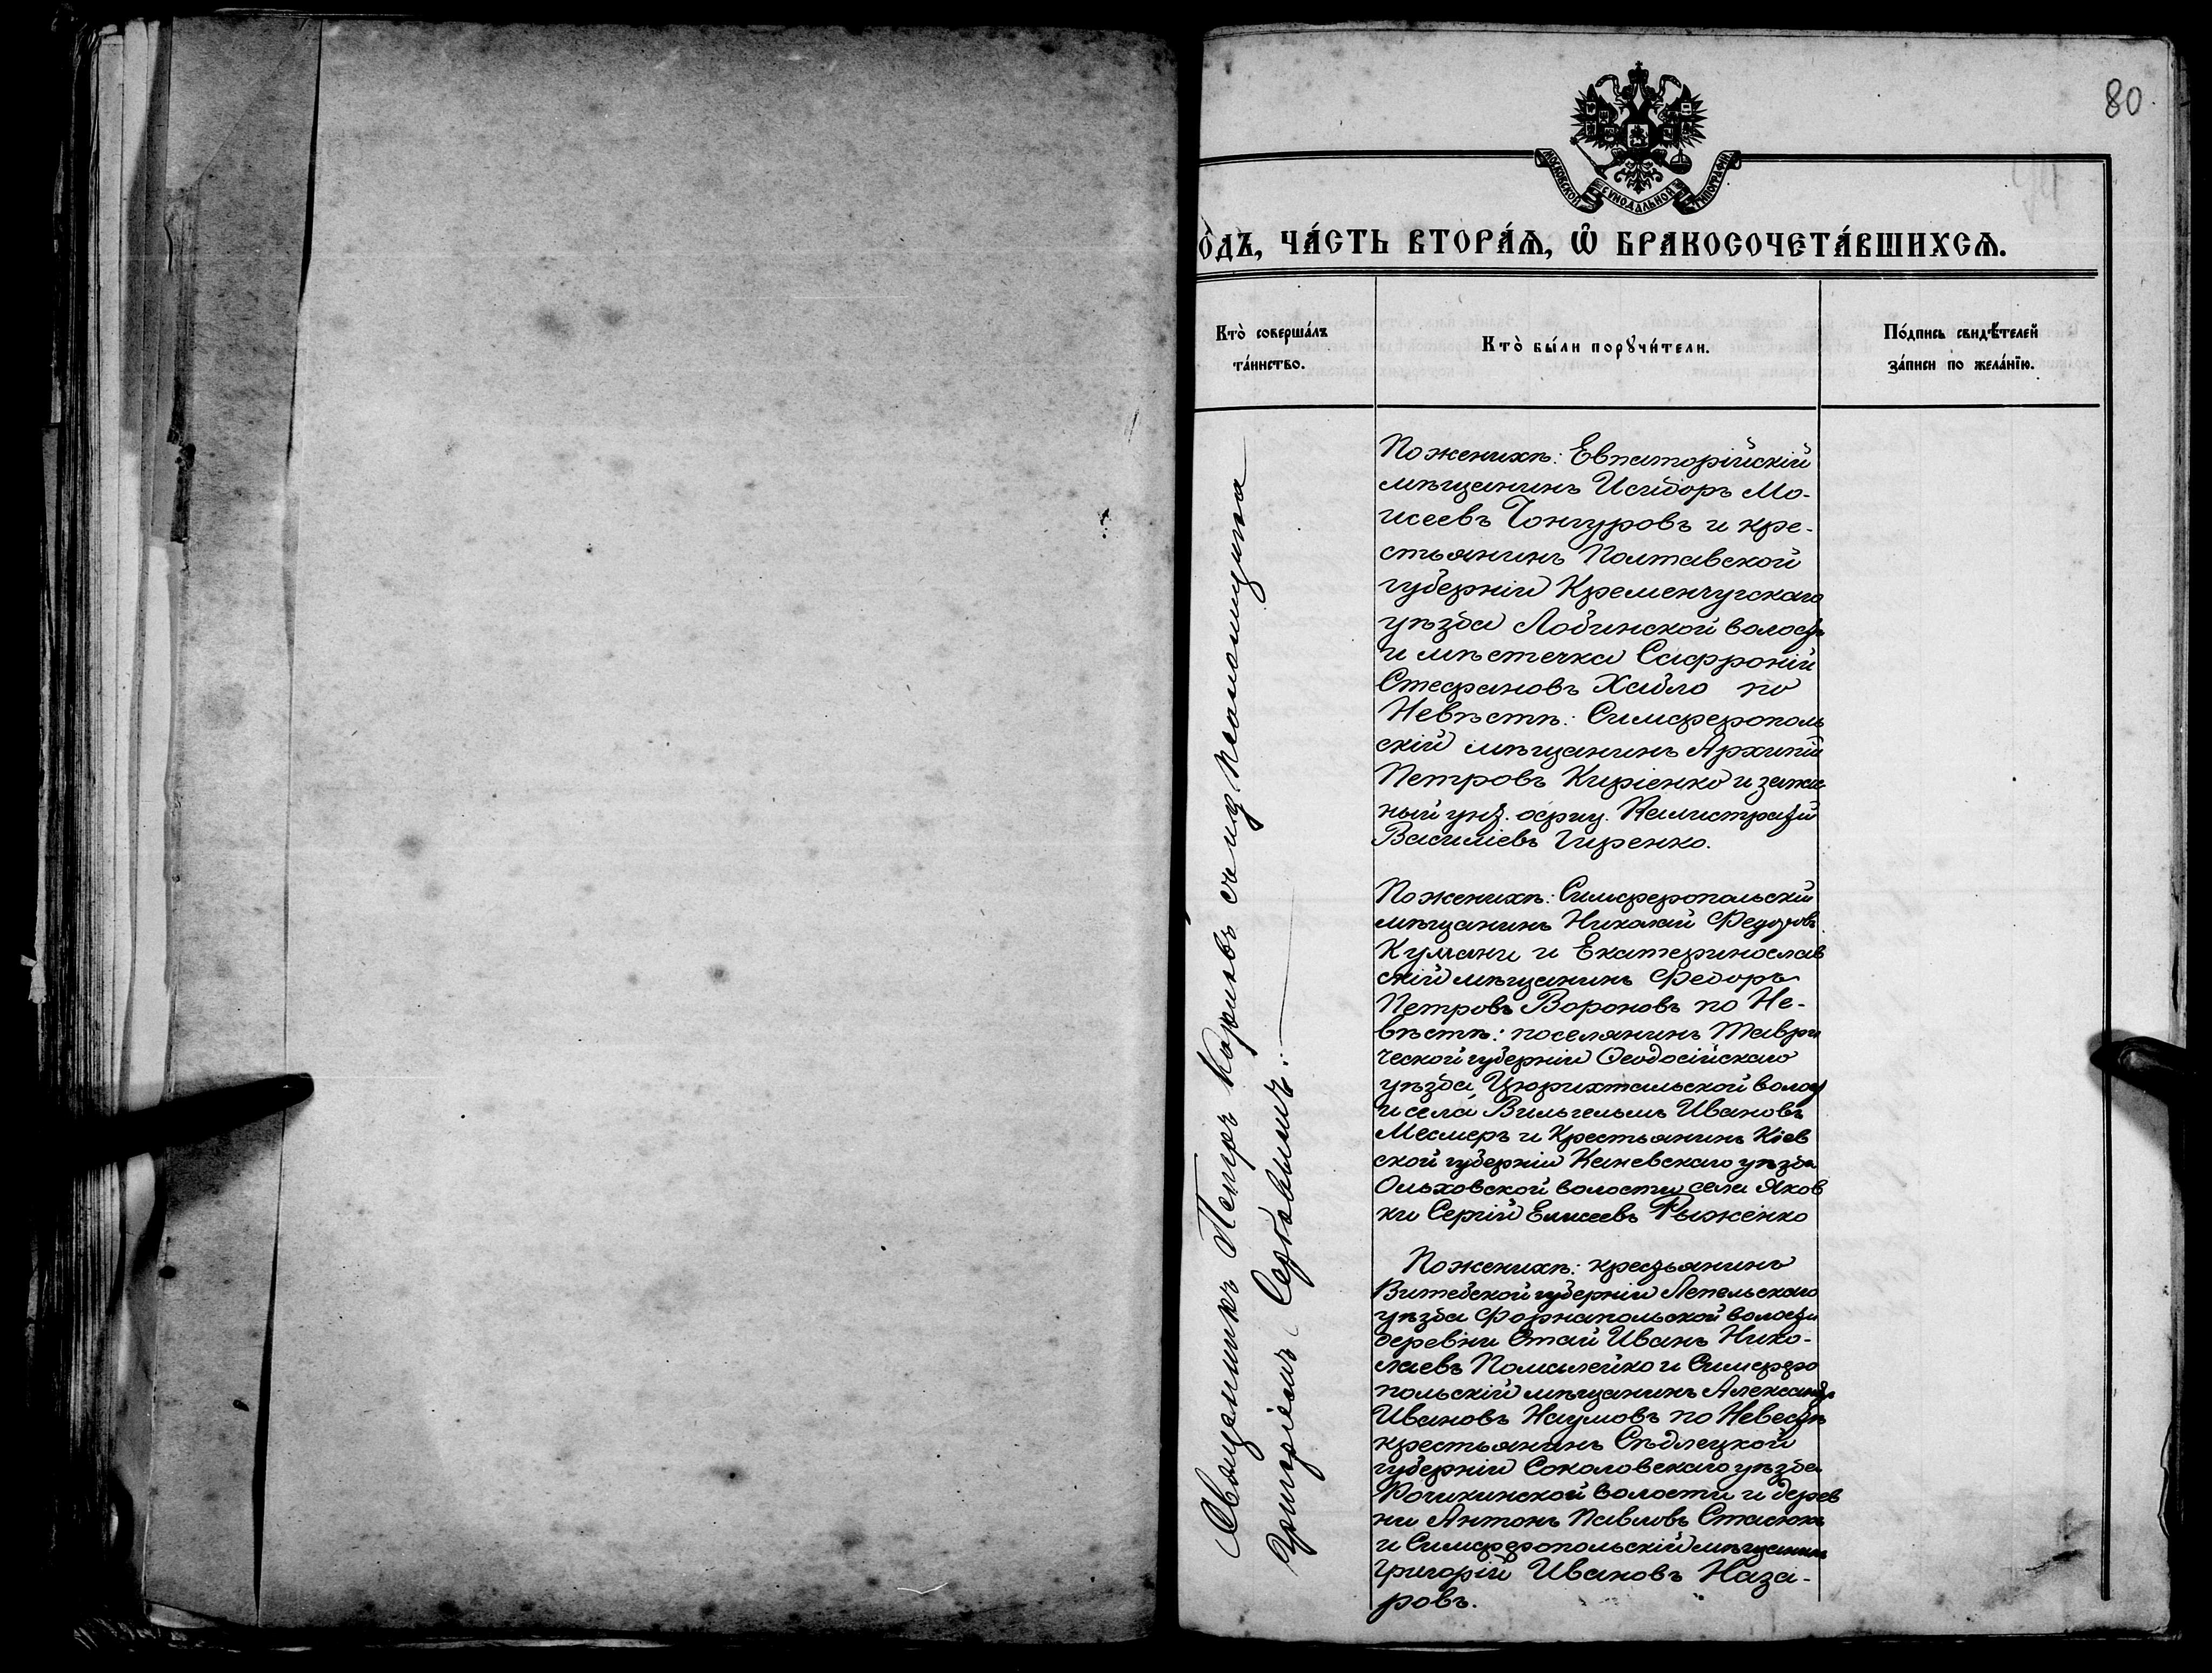 80
МОСКОВСКОЙ СУНОДАЛЬНОЙ ТИПОГРАФІИ
О́ДЪ, ЧА́СТЬ ВТОРА́Ѧ, Ѽ БРАКОСОЧЕТА́ВШИХСѦ.
Кто̀ соверша́лъ
та́инство.
Кто̀ бы́ли порꙋчи́тели.
По́дпись свидѣ́телей
за́писи по жела́нїю.
Священникъ Петръ
Григоріемъ Сербовымъ.
По женихѣ: Евпаторійскій
мѣщанинъ Исидоръ Мо-
исеевъ Чонгуровъ и кре-
стьянинъ Полтавской
губерніи Кременчугскаго
уѣзда
и мѣстечка Сафроній
Стефановъ Хайло по
Невѣстѣ: Симферополь
скій мѣщанинъ Архипій
Петровъ Киріенко и
ный унт. офиц. Калистратій
Василіевъ Гиренко.
По женихѣ: Симферопольскій
мѣщанинъ Николай Федоровъ
Кумани и Екатеринослав
скій мѣщанинъ Федоръ
Петровъ Вороновъ по Не-
вѣстѣ: поселянинъ Таври
ческой губерніи Ѳеодосійскаго
уѣзда, Цюрихтальской волос
и села Вильгельмъ Ивановъ
Месмеръ и Крестьянинъ Кіев
ской губерніи Каневскаго уѣзда
Ольховской волости села Яков
ки Сергій Елисеевъ Рыженко
По женихѣ: крестьянинъ
Витебской губерніи Лепельскаго
уѣзда волости
деревни Стай Иванъ Нико-
лаевъ Помалейко и Симферо
польскій мѣщанинъ Александръ
Ивановъ Наумовъ по Невестѣ
крестьянинъ Сѣдлецкой
губерніи Соколовскаго уѣзда
волости и дерев
ни Антонъ Павловъ Стасюкъ
и Симферопольскій мѣщанинъ
Григорій Ивановъ Наза-
ровъ.